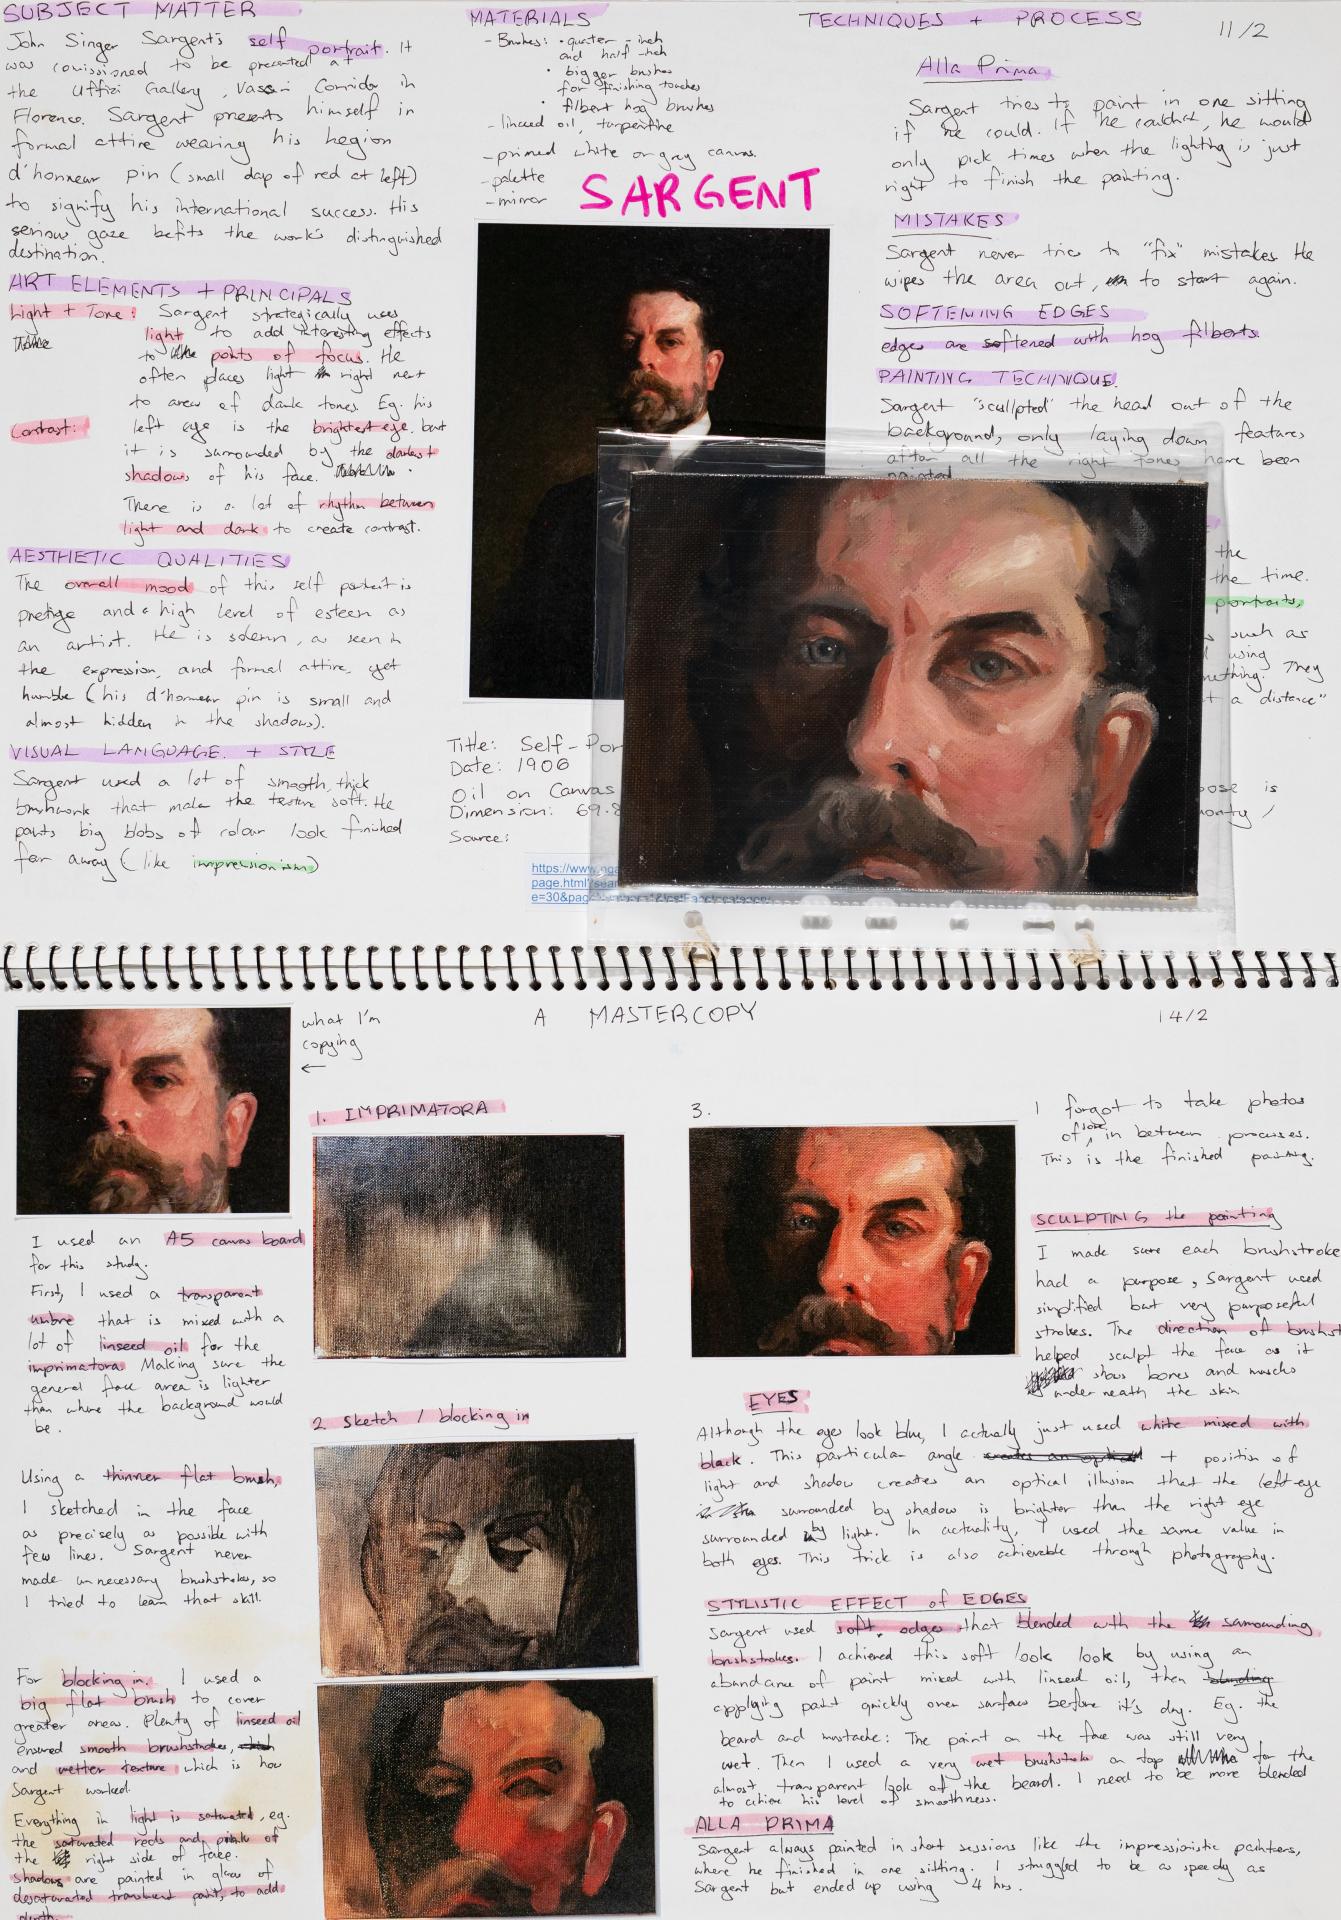 SUBJECT MATTER
John Singer Sargent's self portrait. It
was comissioned to be presented at
the Uffizi Gallery, Vasari Corridor in
Florence. Sargent presents himself in
formal attire wearing his legion
d'honneur pin (small dap of red at left)
to signify his international success. His
serious gaze befits the work's distinguished
destination.
ART ELEMENTS + PRINCIPALS
Light + Tone: Sargent strategically uses
light to add interesting effects
to points of focus. He
often places light right next
to area of dark tones. Eg. his
Contrast: left eye is the brightest eye. but
it is surrounded by the darkest
shadows of his face.
There is a lot of rhythm between
light and dark to create contrast.
AESTHETIC QUALITIES
The overall mood of this self portrait is
pretige and a high level of esteem as
an artist. He is solemn, as seen in
the expression, and formal attire, yet
humble (his d'honneur pin is small and
almost hidden in the shadows).
VISUAL LANGUAGE. + STYLE
Sargent used a lot of smooth, thick
brushwork that make the texture soft. He
paints big blobs of colour look finished
far away (like impressionism)
MATERIALS
- Brushes: • quater - inch
and half - inch
• bigger brushes
for finishing touches
• filbert hog brushes
- linseed oil, turpentine
- primed white or grey canvas.
- palette
- mirror
SARGENT
Title: Self-Por
Date: 1906
Oil on Canvas
Dimension: 69.8
Source:
https://www.nga
page.html?sear
e=30&pag
TECHNIQUES + PROCESS
11/2
Alla Prima
Sargent tries to paint in one sitting
if he could. If he couldn't, he would
only pick times when the lighting is just
right to finish the painting.
MISTAKES
Sargent never tries to "fix" mistakes. He
wipes the area out, to start again.
SOFTENING EDGES
edges are softened with hog filberts.
PAINTING TECHNIQUE.
Sargent "sculpted" the head out of the
background, only laying down features
after all the right tones have been
painted
the
the time.
portraits,
such as
using
mething. They
t a distance"
pose is
what I'm
copying
←
A MASTERCOPY
14/2
I used an A5 canvas board
for this study.
First, I used a transparent
umbre that is mixed with a
lot of linseed oil for the
imprimatora. Making sure the
general face area is lighter
than where the background would
be.
Using a thinner flat brush,
I sketched in the face
as precisely as possible with
few lines. Sargent never
made unnecessary brushstrokes, so
I tried to learn that skill.
For blocking in. I used a
big flat brush to cover
greater areas. Plenty of linseed oil
ensured smooth brushstrokes,
and wetter texture which is how
Sargent worked.
Everything in light is saturated, eg.
the saturated reds and pinks of
the right side of face.
shadows are painted in glaze of
desaturated translucent paint, to add
depth.
1. IMPRIMATORA
2. Sketch / blocking in
3.
I forgot to take photos
of some in between processes.
This is the finished painting.
SCULPTING the painting
I made sure each brushstroke
had a purpose, Sargent used
simplified but very purposeful
strokes. The direction of brushst
helped sculpt the face as it
shows bones and muscles
underneath the skin
EYES
Although the eyes look blue, I actually just used white mixed with
black. This particular angle + position of
light and shadow creates an optical illusion that the left eye
surrounded by shadow is brighter than the right eye
surrounded by light. In actuality, I used the same value in
both eyes. This trick is also achievable through photography.
STYLISTIC EFFECT of EDGES
Sargent used soft edges that blended with the sarrounding
brushstrokes. I achieved this soft look look by using an
abundance of paint mixed with linseed oil, then
applying paint quickly over surface before it's dry. Eg. the
beard and mustache: The paint on the face was still very
wet. Then I used a very wet brushstroke on top for the
almost transparent look of the beard. I need to be more blended
to achieve his level of smoothness.
ALLA PRIMA
Sargent always painted in short sessions like the impressionistic painters,
where he finished in one sitting. I struggled to be as speedy as
Sargent but ended up using 4 hrs.